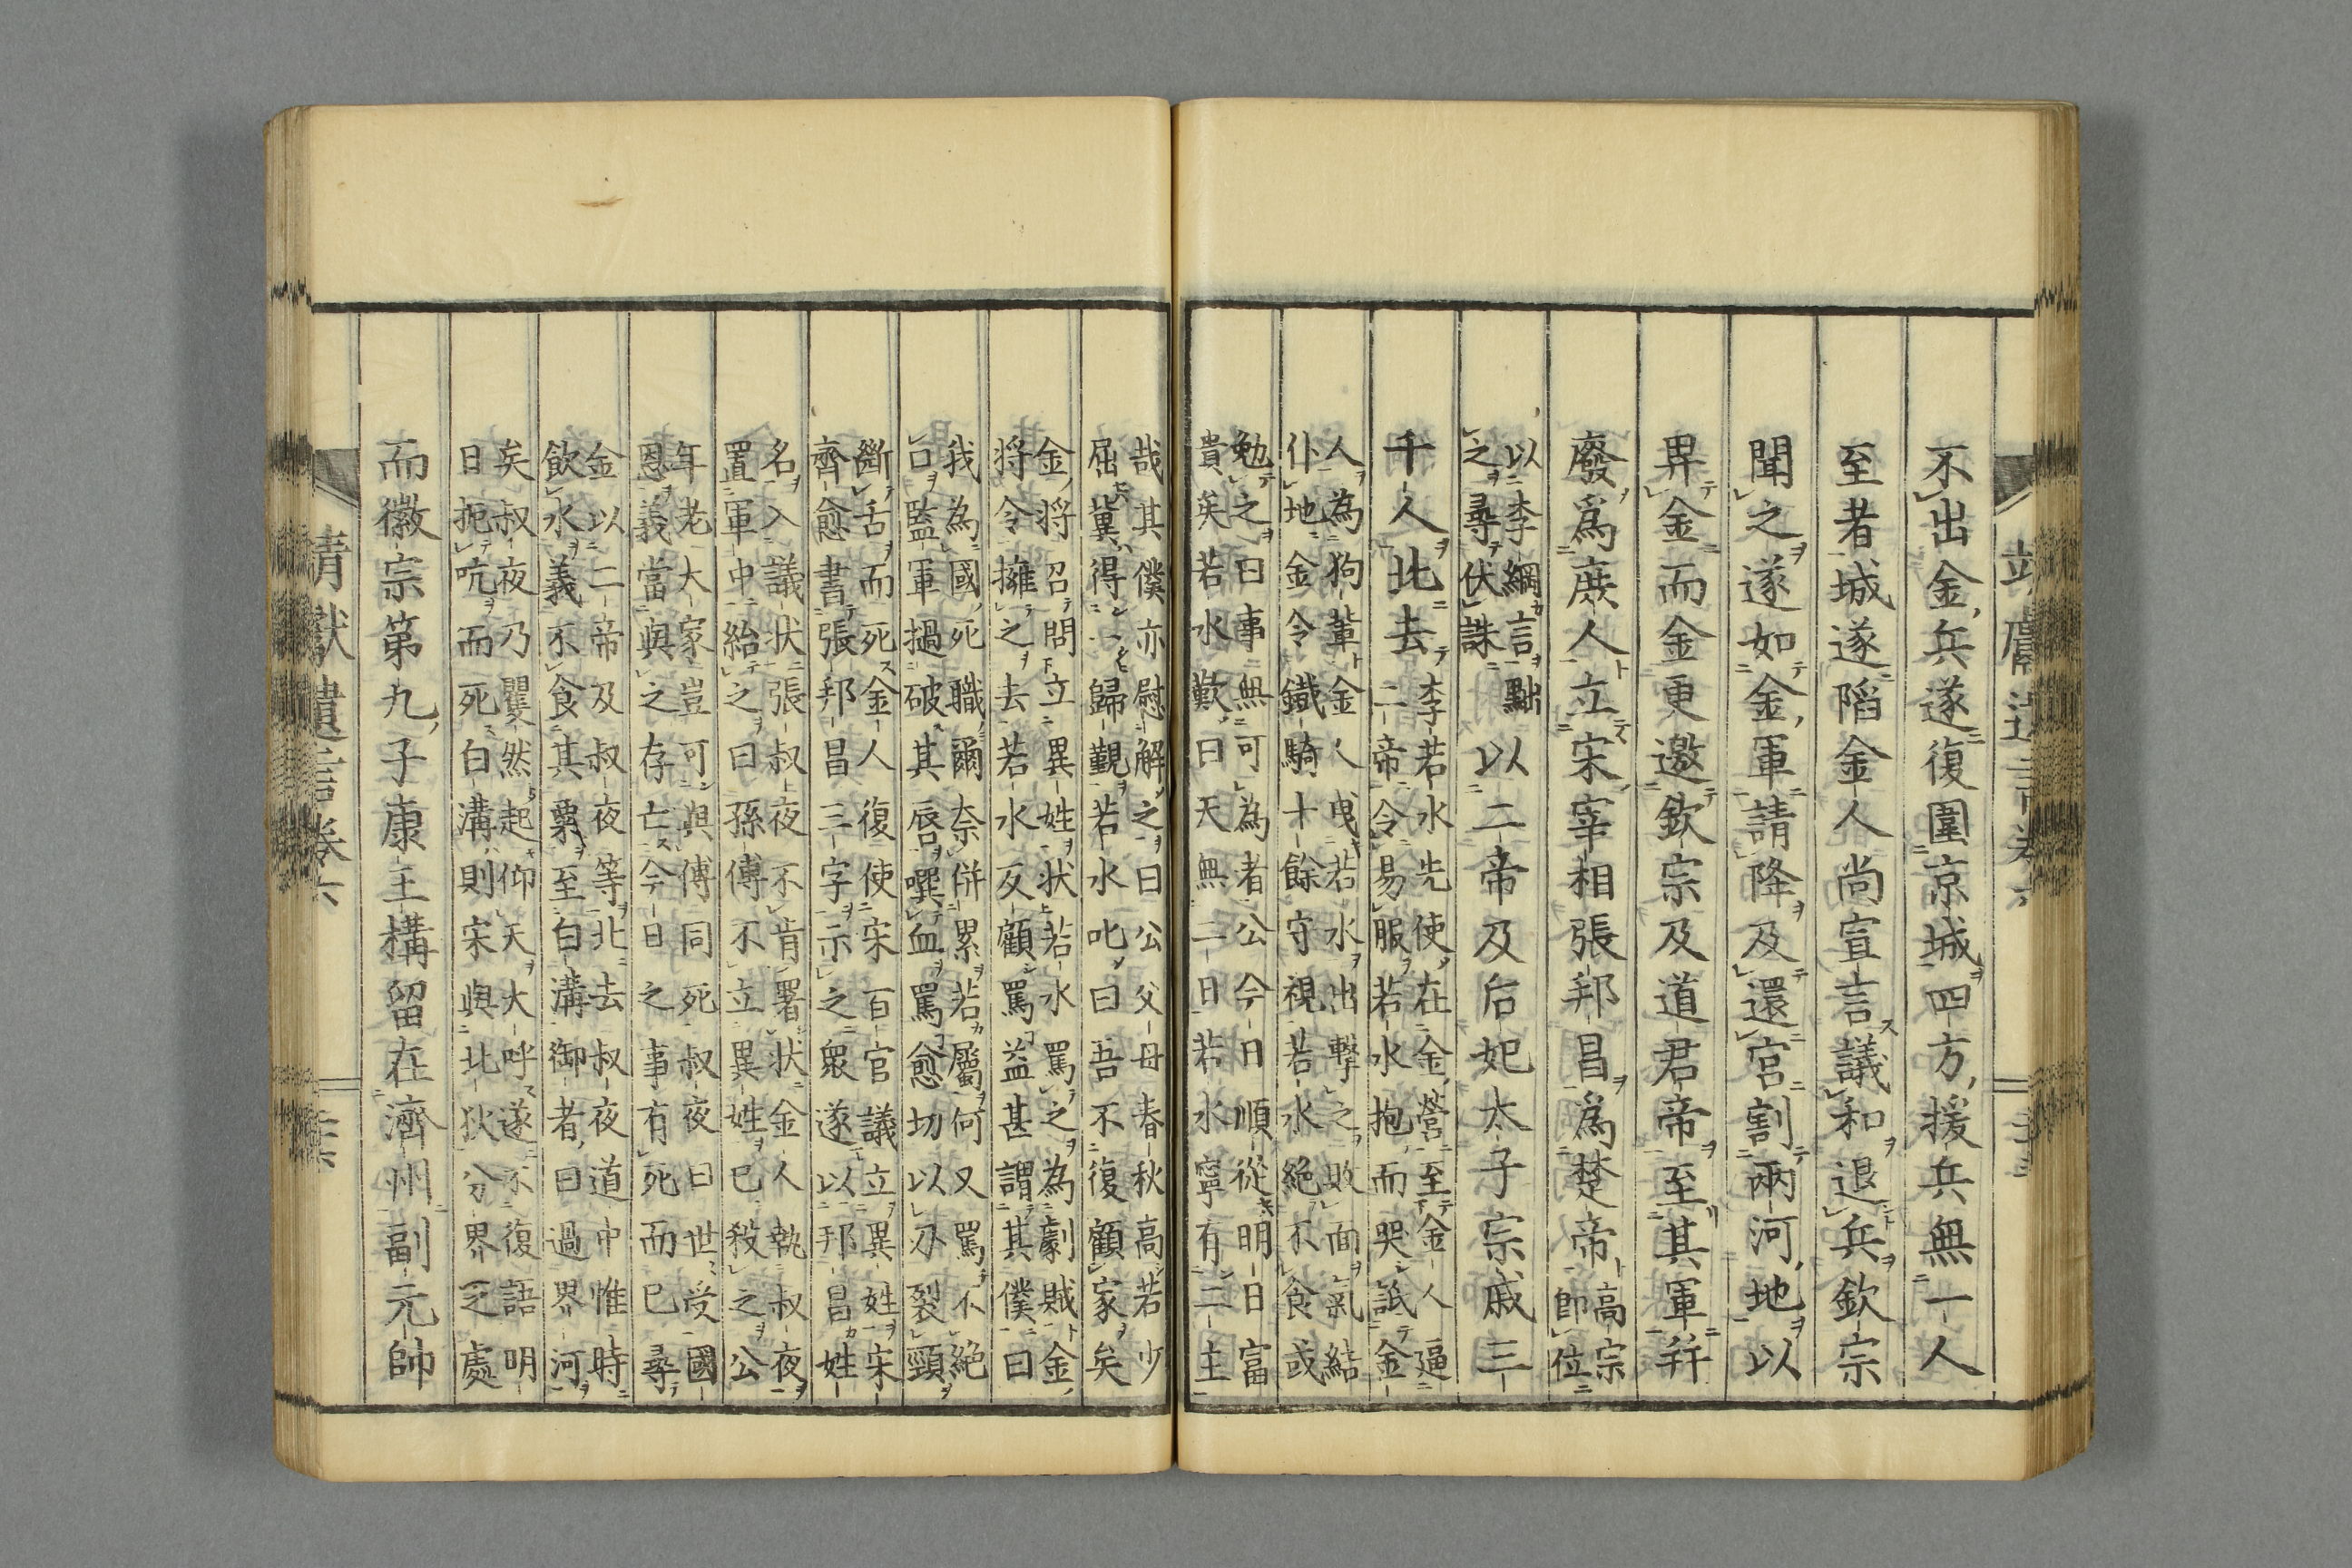 不出金兵遂復圍京城四方援兵無一人
至者城遂陷金人尚宣言議和退兵欽宗
聞之遂如金軍請降及還宮割兩河地以
畀金而金更邀欽宗及道君帝至其軍幷
廢爲庶人立宋宰相張邦昌爲楚帝高宗
即位
以李綱言黜
之尋伏誅以二帝及后妃太子宗戚三
千人北去李若水先使在金營至金人逼
二帝令易服若水抱而哭詆金
人為狗輩金人曳若水出擊之敗面氣結
仆地金令鐵騎十餘守視若水絶不食或
勉之曰事無可為者公今日順從明日富
貴矣若水歎曰天無二日若水寧有二主
哉其僕亦慰解之曰公父母春秋高若少
屈冀得一歸覲若水叱曰吾不復顧家矣
金將召問立異姓狀若水罵之為劇賊金
將令擁之去若水反顧罵益甚謂其僕曰
我為國死職爾奈併累若屬何又罵不絶
口監軍撾破其唇噀血罵愈切以刃裂頸
斷舌而死金人復使宋百官議立異姓宋
齊愈書張邦昌三字示之衆遂以邦昌姓
名入議狀張叔夜不肯署狀金人執叔夜
置軍中紿之曰孫傅不立異姓已殺之公
年老大家豈可與傅同死叔夜曰世受國
恩義當與之存亡今日之事有死而已尋
金以二帝及叔夜等北去叔夜道中惟時
飲水義不食其粟至白溝御者曰過界河
矣叔夜乃矍然起仰天大呼遂不復語明
日扼吭而死白溝則宋與北狄分界之處
而徽宗第九子康王構留在濟州副元帥
靖獻遺言卷六